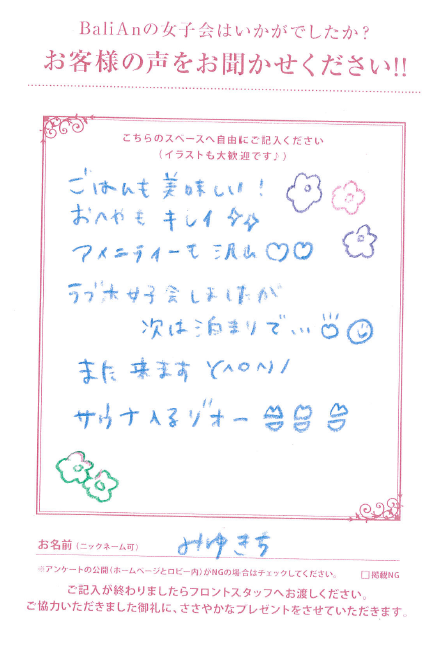 BaliAnの女子会はいかがでしたか?
お客様の声をお聞かせください!!
こちらのスペースへ自由にご記入ください
(イラストも大歓迎です♪)
ごはんも美味しい!
おへやもキレイ☆☆
アメニティーも沢山♡♡
ラブホ女子会しましたが
次は泊まりで…
また来ます\(^o^)/
サウナ入るゾオー
お名前(ニックネーム可) みゆきち
※アンケートの公開(ホームページとロビー内)がNGの場合はチェックしてください。 □掲載NG
ご記入が終わりましたらフロントスタッフへお渡しください。
ご協力いただきました御礼に、ささやかなプレゼントをさせていただきます。